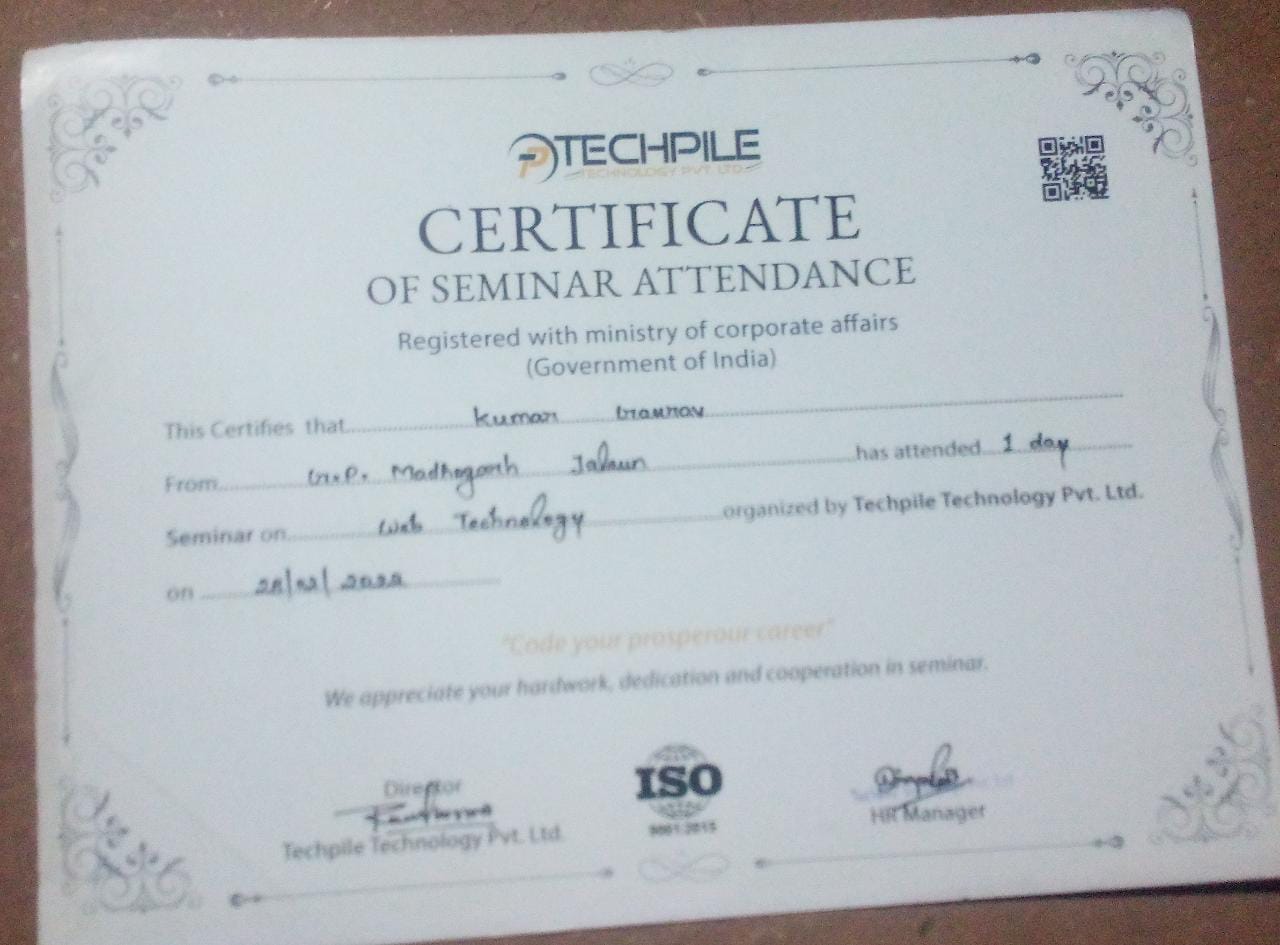 TECHPILE
TECHNOLOGY PVT. LTD.
CERTIFICATE
OF SEMINAR ATTENDANCE
Registered with ministry of corporate affairs
(Government of India)
This Certifies that Kumar Gaurav
From G.P. Madhogarh Jalaun has attended 1 day
Seminar on Web Technology organized by Techpile Technology Pvt. Ltd.
on 28/02/2022
"Code your prosperour career"
We appreciate your hardwork, dedication and cooperation in seminar.
Director
Techpile Technology Pvt. Ltd.
ISO
9001:2015
HR Manager